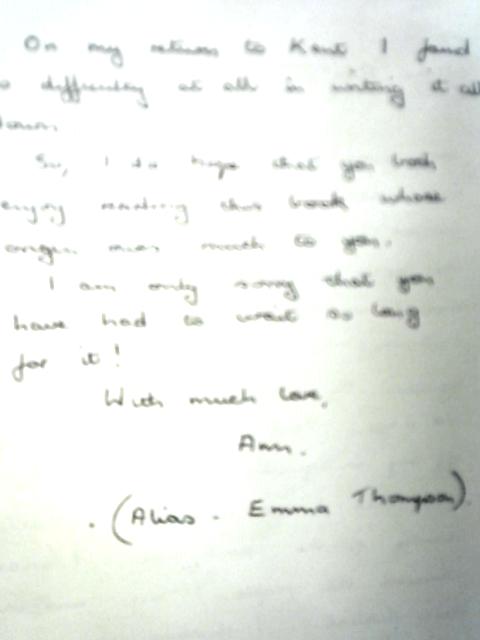 On my return to Kent I found
no difficulty at all in writing it all
down.
So, I do hope that you both
enjoy reading this book whose
origin owes much to you.
I am only sorry that you
have had to wait so long
for it!
With much love,
Ann.
(Alias - Emma Thompson).